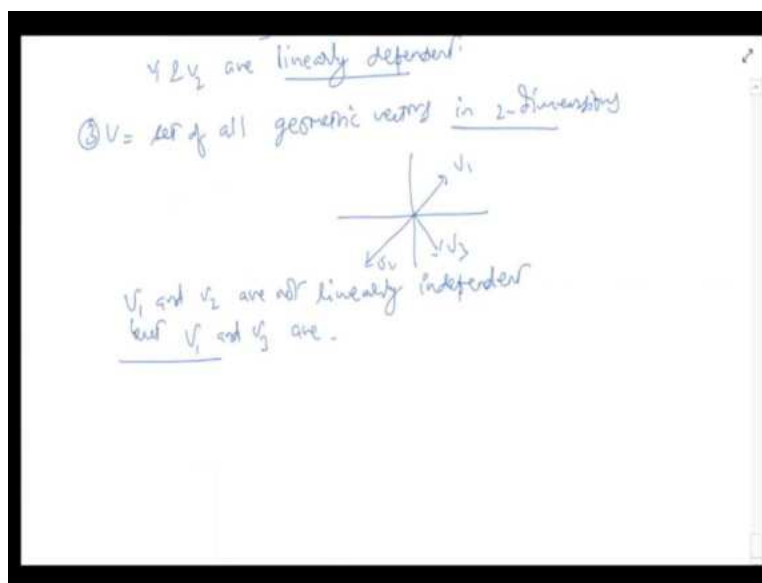 v₁ & v₂ are linearly dependent.
③ V = set of all geometric vectors in 2-dimensions
v₁
v₂
v₃
v₁ and v₂ are not linearly independent
but v₁ and v₃ are.